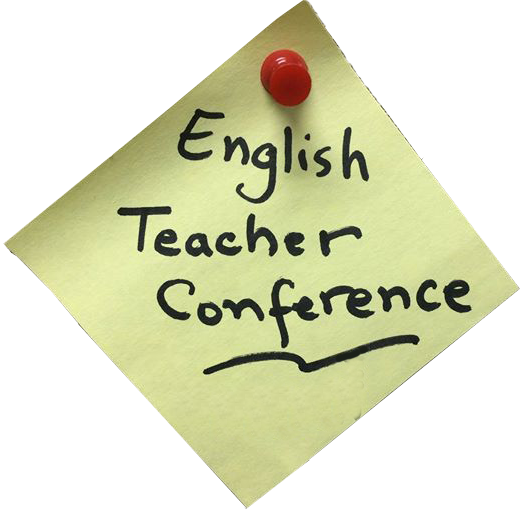 English
Teacher
Conference